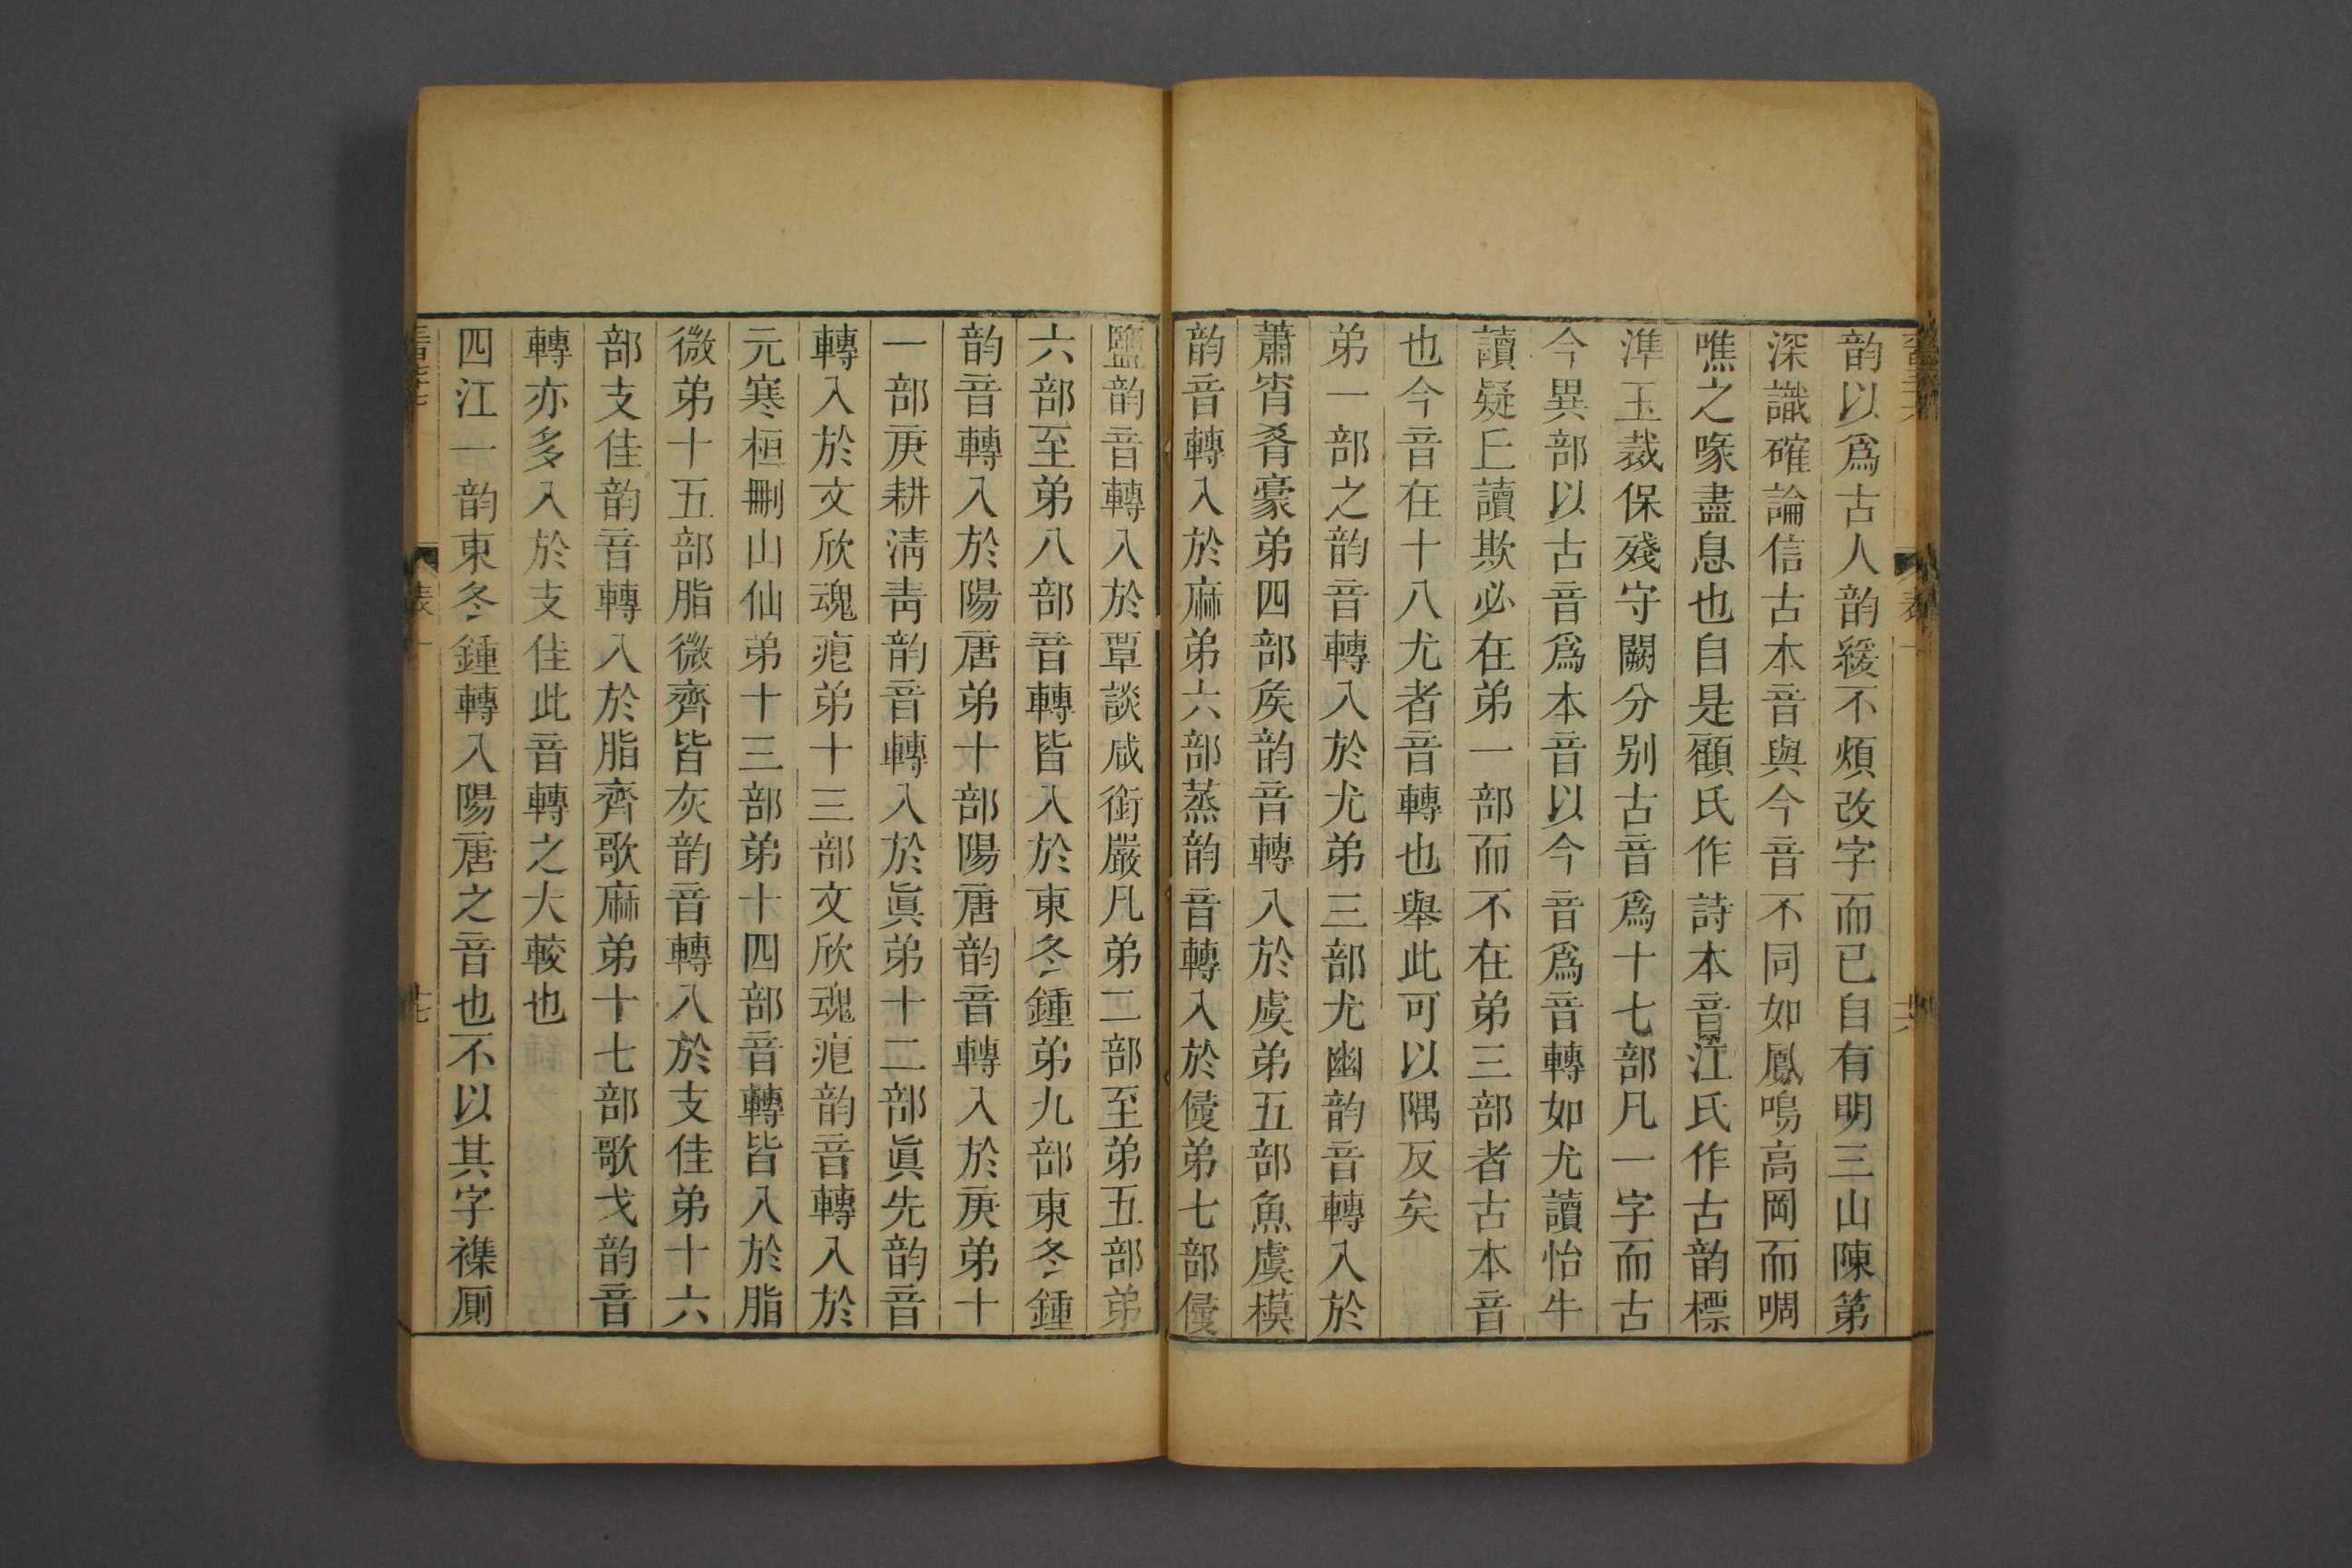 韵以爲古人韵緩不煩改字而已自有明三山陳第
深識確論信古本音與今音不同如鳳鳴高岡而啁
噍之喙盡息也自是顧氏作詩本音江氏作古韵標
準玉裁保殘守闕分别古音爲十七部凡一字而古
今異部以古音爲本音以今音爲音轉如尤讀怡牛
讀疑丘讀欺必在弟一部而不在弟三部者古本音
也今音在十八尤者音轉也舉此可以隅反矣
弟一部之韵音轉入於尤弟三部尤幽韵音轉入於
蕭宵肴豪弟四部矦韵音轉入於虞弟五部魚虞模
韵音轉入於麻弟六部蒸韵音轉入於侵弟七部侵
鹽韵音轉入於覃談咸銜嚴凡弟二部至弟五部弟
六部至弟八部音轉皆入於東冬鍾弟九部東冬鍾
韵音轉入於陽唐弟十部陽唐韵音轉入於庚弟十
一部庚耕清青韵音轉入於眞弟十二部眞先韵音
轉入於文欣魂痕弟十三部文欣魂痕韵音轉入於
元寒桓刪山仙弟十三部弟十四部音轉皆入於脂
微弟十五部脂微齊皆灰韵音轉入於支佳弟十六
部支佳韵音轉入於脂齊歌麻弟十七部歌戈韵音
轉亦多入於支佳此音轉之大較也
四江一韵東冬鍾轉入陽唐之音也不以其字襍厠